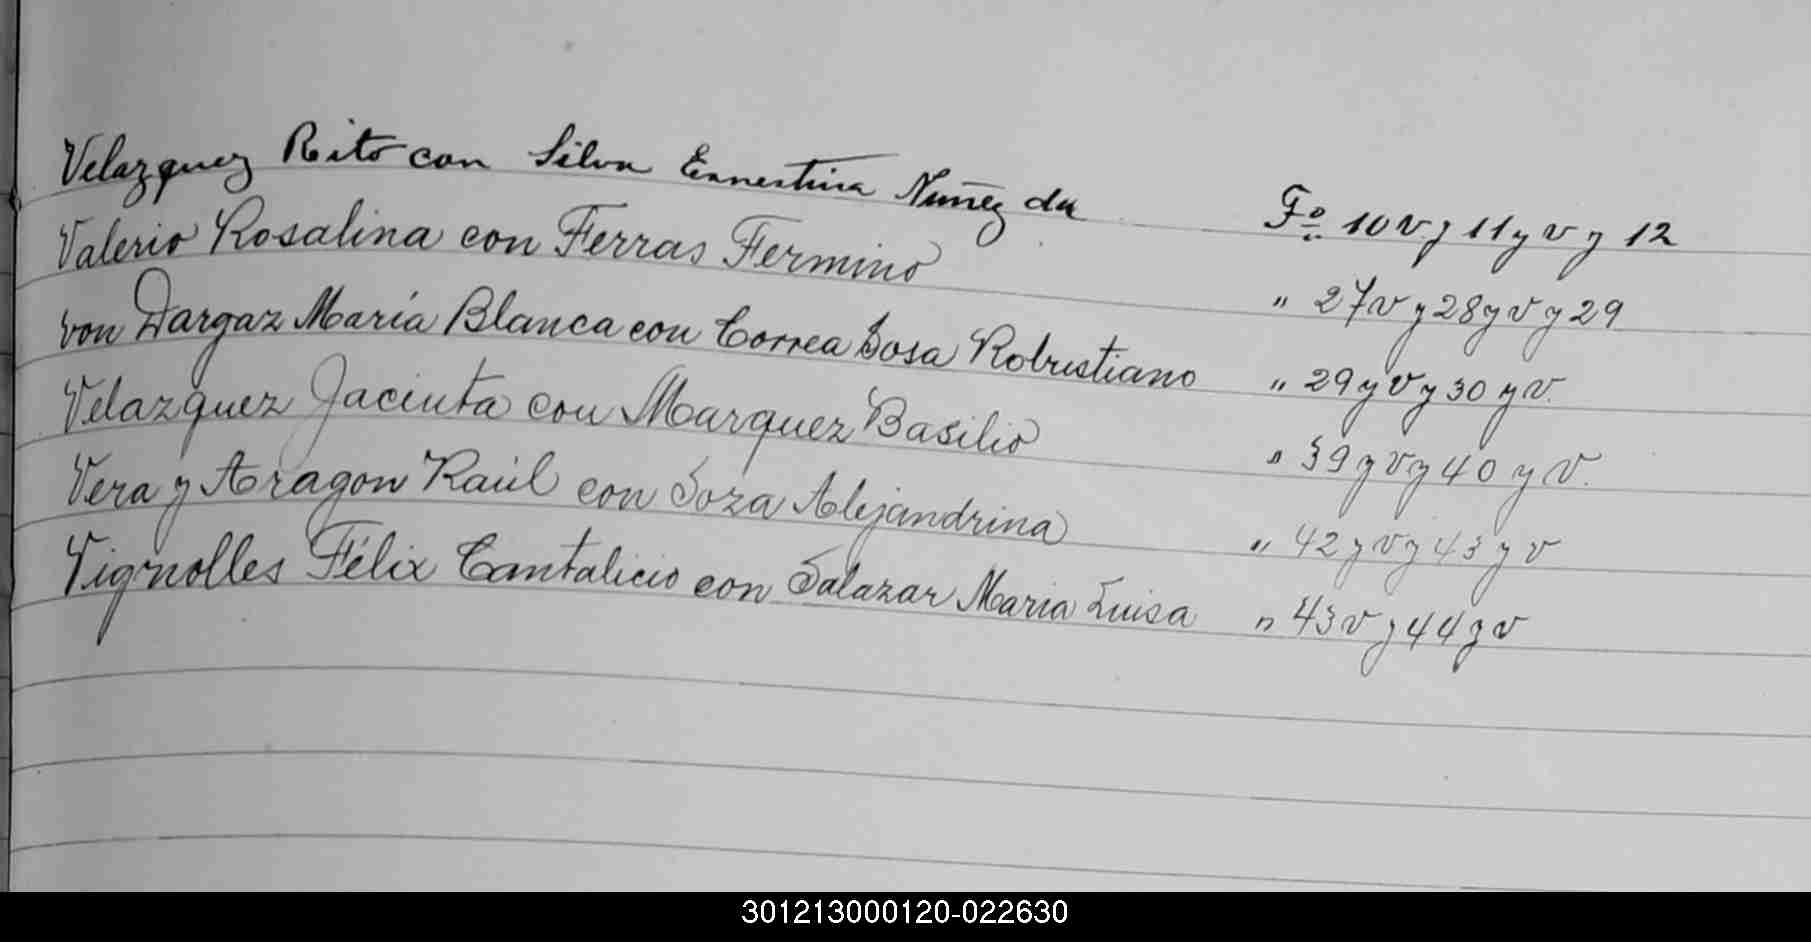 Velazquez Rito con Silva Ernestina Nuñez da Fº 10 v y 11 y v y 12
Valerio Rosalina con Ferras Fermino " 27 v y 28 y v y 29
von Dargaz María Blanca con Correa Sosa Robustiano " 29 y v y 30 y v.
Velazquez Jacinta con Marquez Basilio " 39 y v y 40 y v.
Vera y Aragon Raúl con Soza Alejandrina " 42 y v y 43 y v
Vignolles Félix Cantalicio con Salazar Maria Luisa " 43 v y 44 y v
301213000120-022630